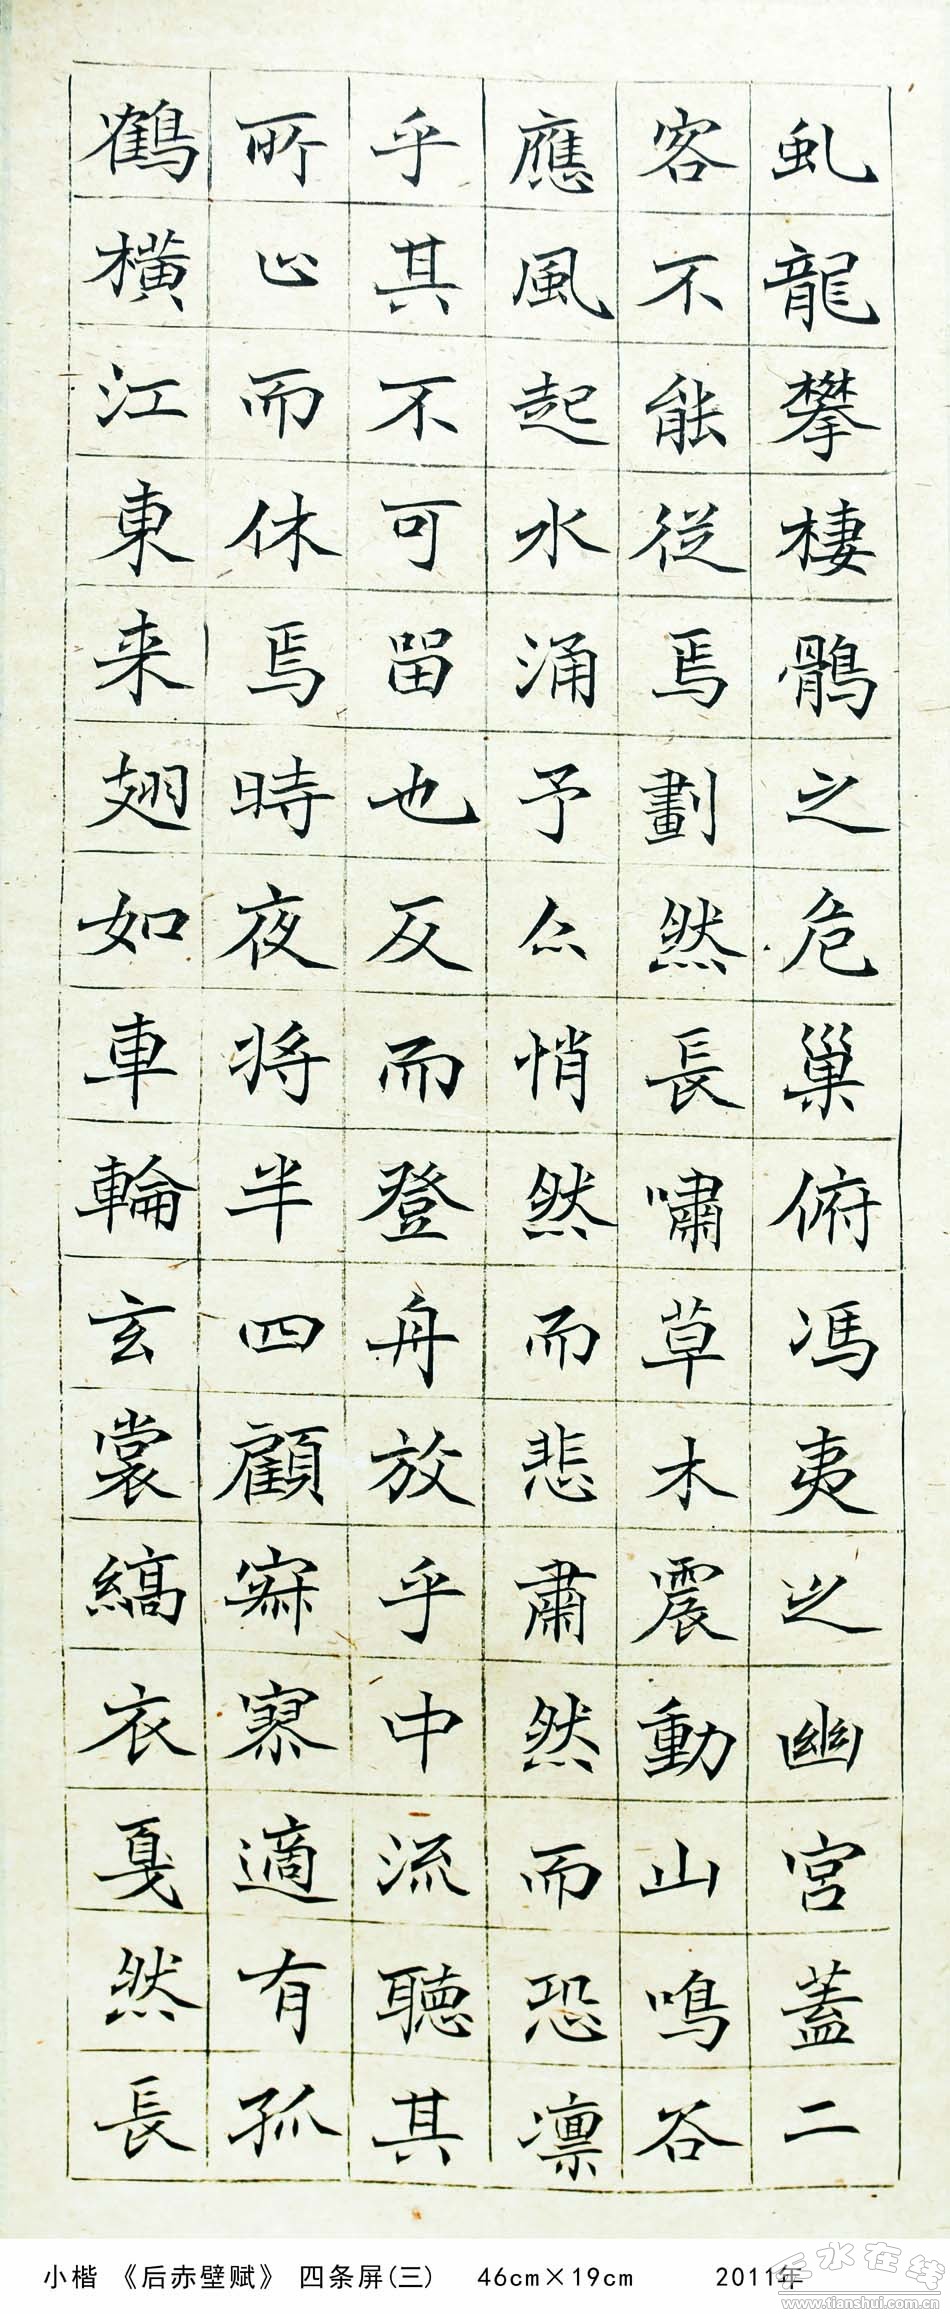 虬龍攀棲鶻之危巢俯馮夷之幽宮蓋二
客不能從焉劃然長嘯草木震動山鳴谷
應風起水涌予亦悄然而悲肅然而恐凛
乎其不可留也反而登舟放乎中流聽其
所止而休焉時夜將半四顧寂寥適有孤
鶴橫江東来翅如車輪玄裳縞衣戛然長
小楷 《后赤壁赋》 四条屏(三) 46cm×19cm 2011年
天水在线
www.tianshui.com.cn